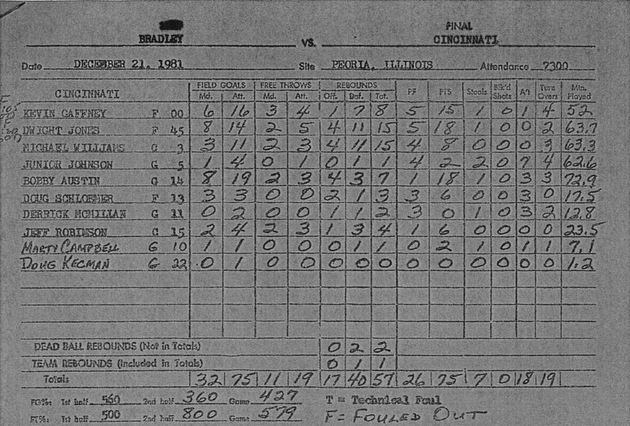 FINAL
BRADLEY VS. CINCINNATI
Date DECEMBER 21, 1981 Site PEORIA, ILLINOIS Attendance 7300
FIELD GOALS FREE THROWS REBOUNDS
CINCINNATI Md. Att. Md. Att. Off. Def. Tot. PF PTS Steals Blk'd Shots A't Turn Overs Min. Played
KEVIN GAFFNEY F 00 6 16 3 4 1 7 8 5 15 1 0 1 4 52
DWIGHT JONES F 45 8 14 2 5 4 11 15 5 18 1 0 0 2 63.7
MICHAEL WILLIAMS C 3 3 11 2 3 4 11 15 4 8 0 0 0 3 63.3
JUNIOR JOHNSON G 5 1 4 0 1 0 1 1 4 2 2 0 7 4 62.6
BOBBY AUSTIN G 14 8 19 2 3 4 3 7 1 18 1 0 3 3 72.9
DOUG SCHLOEMER F 13 3 3 0 0 2 1 3 3 6 0 0 3 0 17.5
DERRICK MCMILLAN G 11 0 2 0 0 1 1 2 3 0 1 0 3 2 12.8
JEFF ROBINSON C 15 2 4 2 3 1 3 4 1 6 0 0 0 0 23.5
MARTY CAMPBELL G 10 1 1 0 0 0 1 1 0 2 1 0 1 1 7.1
DOUG KECMAN G 22 0 1 0 0 0 0 0 0 0 0 0 0 0 1.2
DEAD BALL REBOUNDS (Not in Totals) 0 2 2
TEAM REBOUNDS (Included in Totals) 0 1 1
Totals 32 75 11 19 17 40 57 26 75 7 0 18 19
FG%: 1st half 560 2nd half 360 Game 427 T = Technical Foul
FT%: 1st half 500 2nd half 800 Game 579 F= FOULED OUT